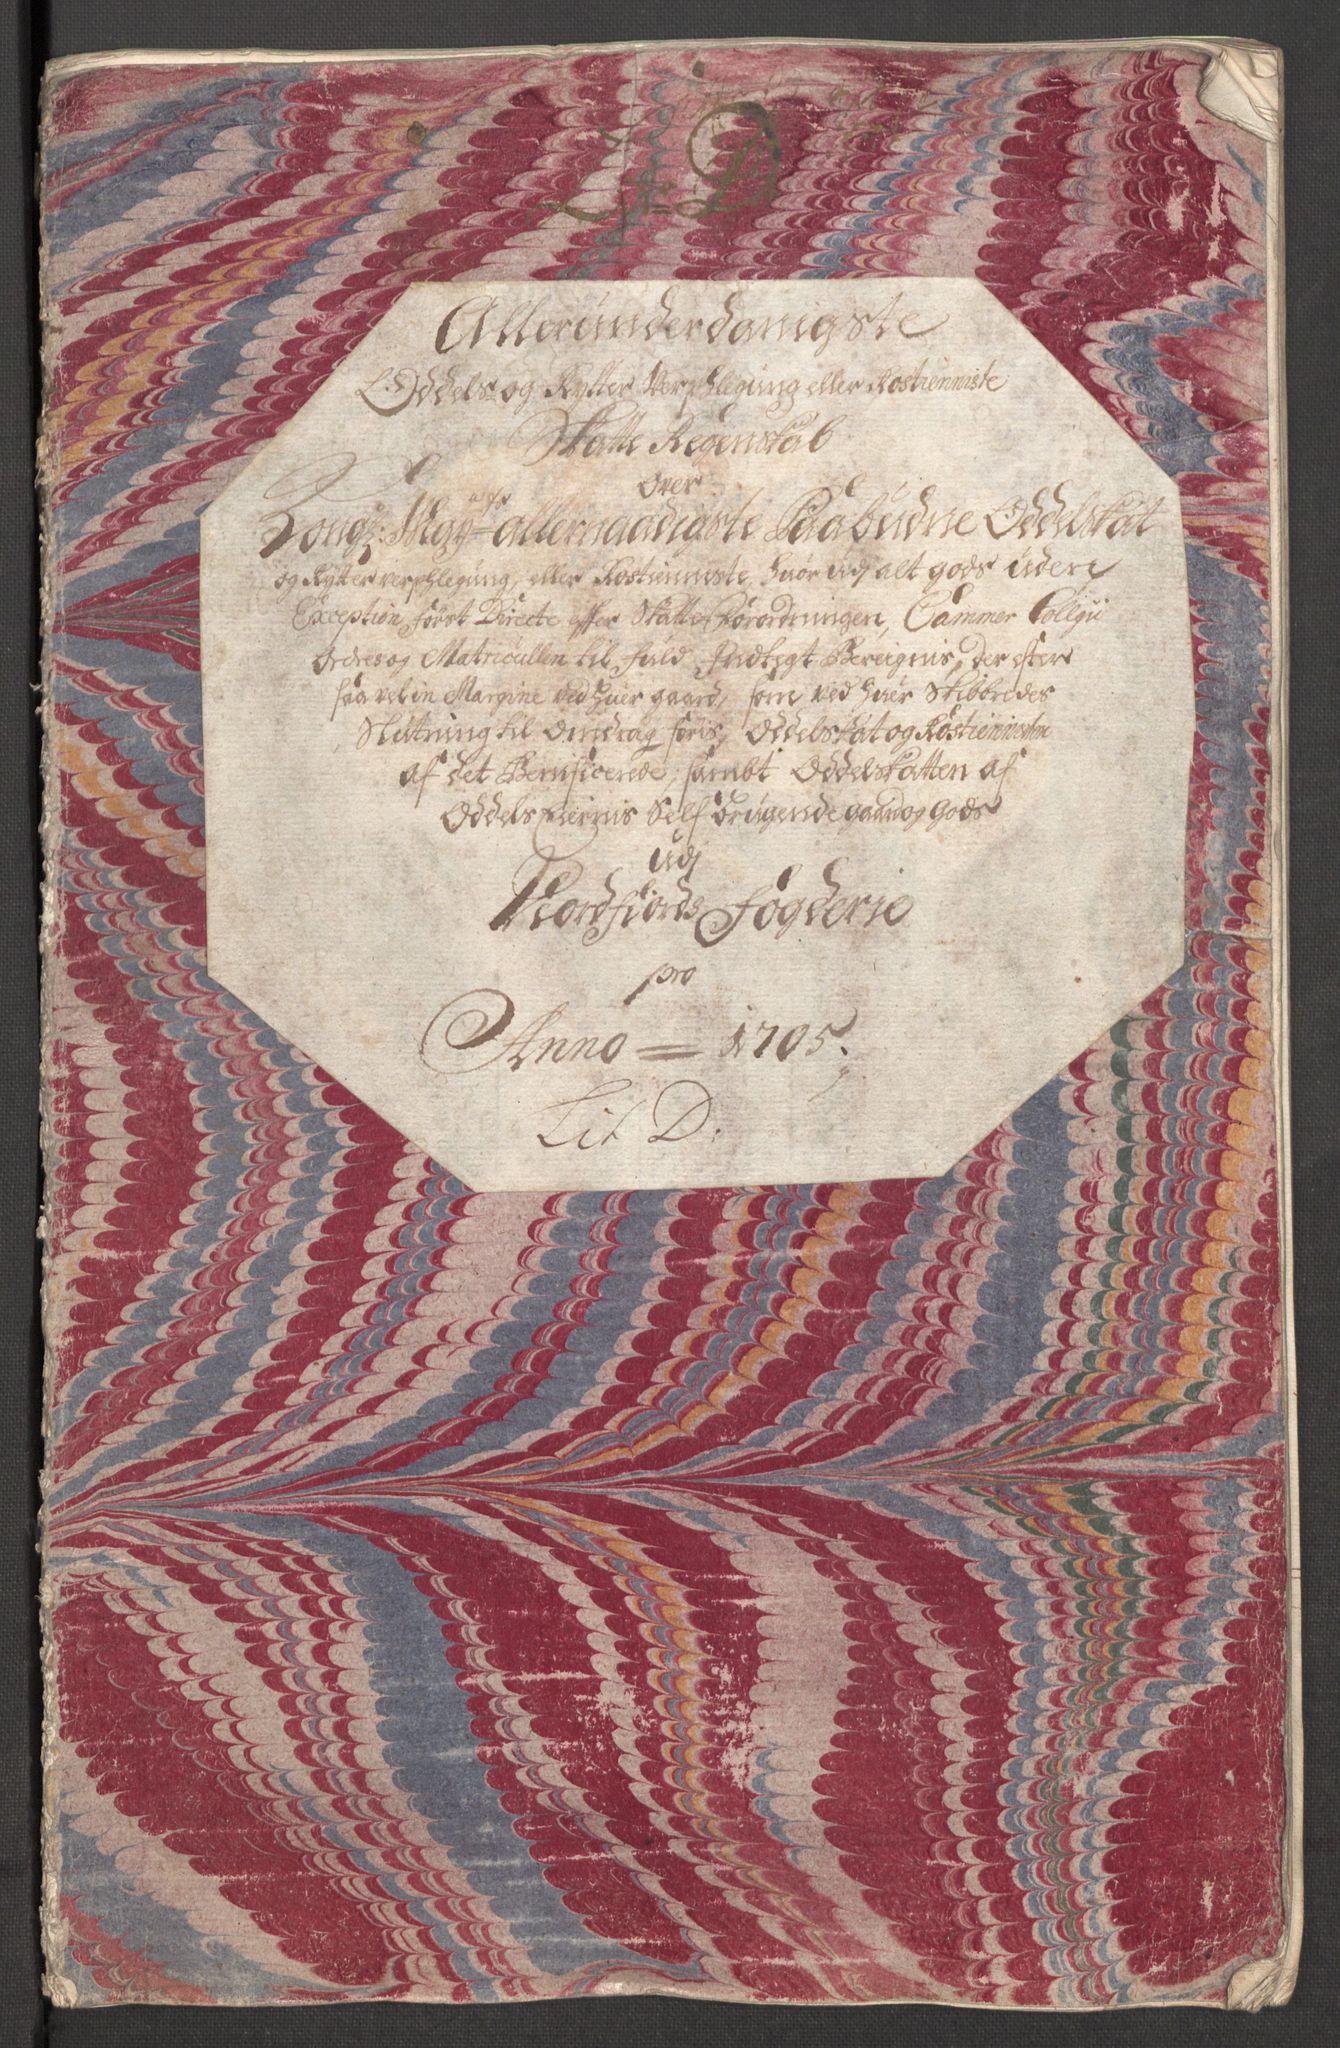 Lit: D
Allerunderdanigste
Oddels og Rytter Verphlegung eller Rostienniste
Skatte Regenskab
over
Kongl: May:ts allernaadigste Paabudne Oddelskat
og Rytterverphlegung, eller Rostienniste, huor udj alt gods uden
Exception, først Directe effter Skatte forordningen, Cammer Collegij
Ordres og Matricullen til fuld Indtegt Beregnis, der efter
saa vel in Margine ved huer gaard, som ved huer Skibbredes
Slutning til Omdrag føris, Oddelskat og Rostienisten
af det Benificerede, sambt Oddelskatten af
Oddels Eiernis Self brugende gaard og Gods
udj
Nordfiords Fogderie
pro
Anno = 1705.
Lit D: